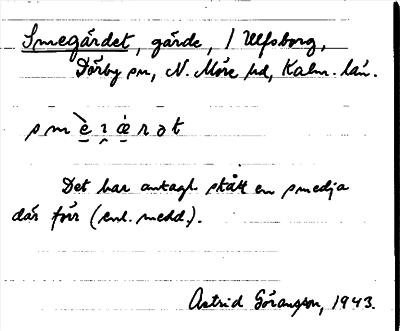 Smegärdet, gärde, / Ulfsborg,
Dörby sn, N. Möre hd, Kalm. län.
Det har antagl. stått en smedja
där förr (enl. medd.).
Astrid Göransson, 1943.